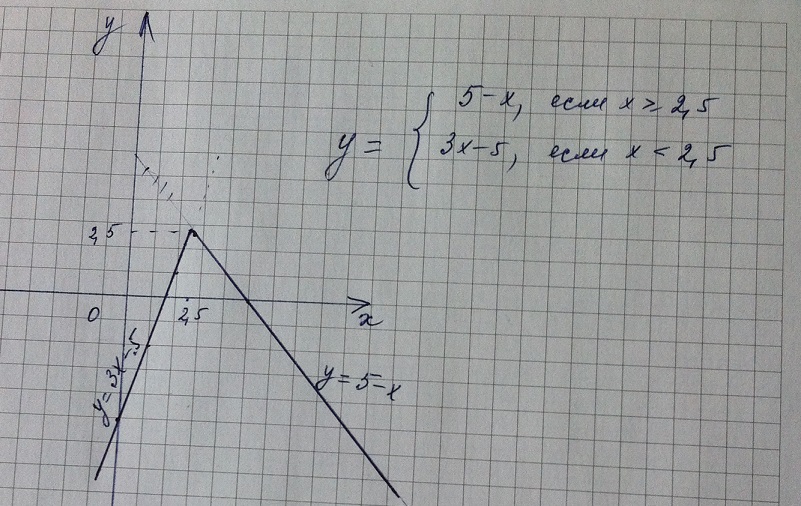 y
5-x, если x ≥ 2,5
y = {
3x-5, если x < 2,5
2,5
0
2,5
x
y=3x-5
y=5-x